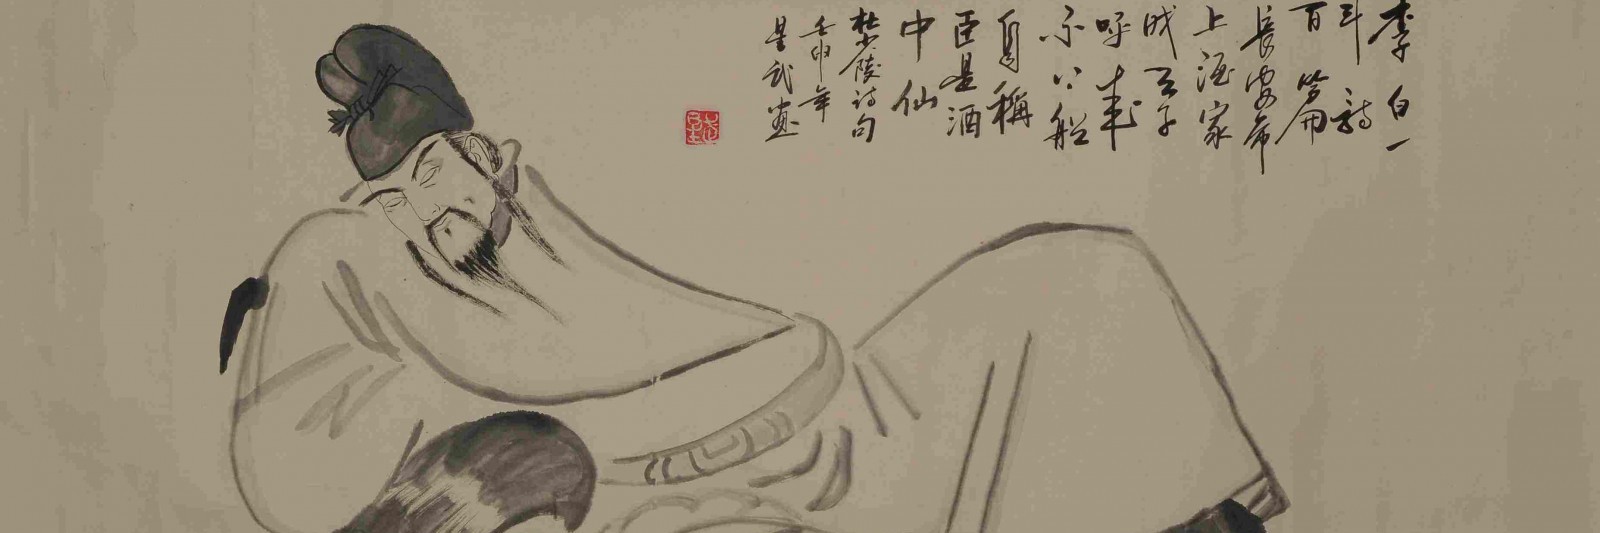 李白一
斗诗
百篇
長安市
上酒家
眠天子
呼来
不上船
自稱
臣是酒
中仙
杜少陵诗句
壬申年
星武画